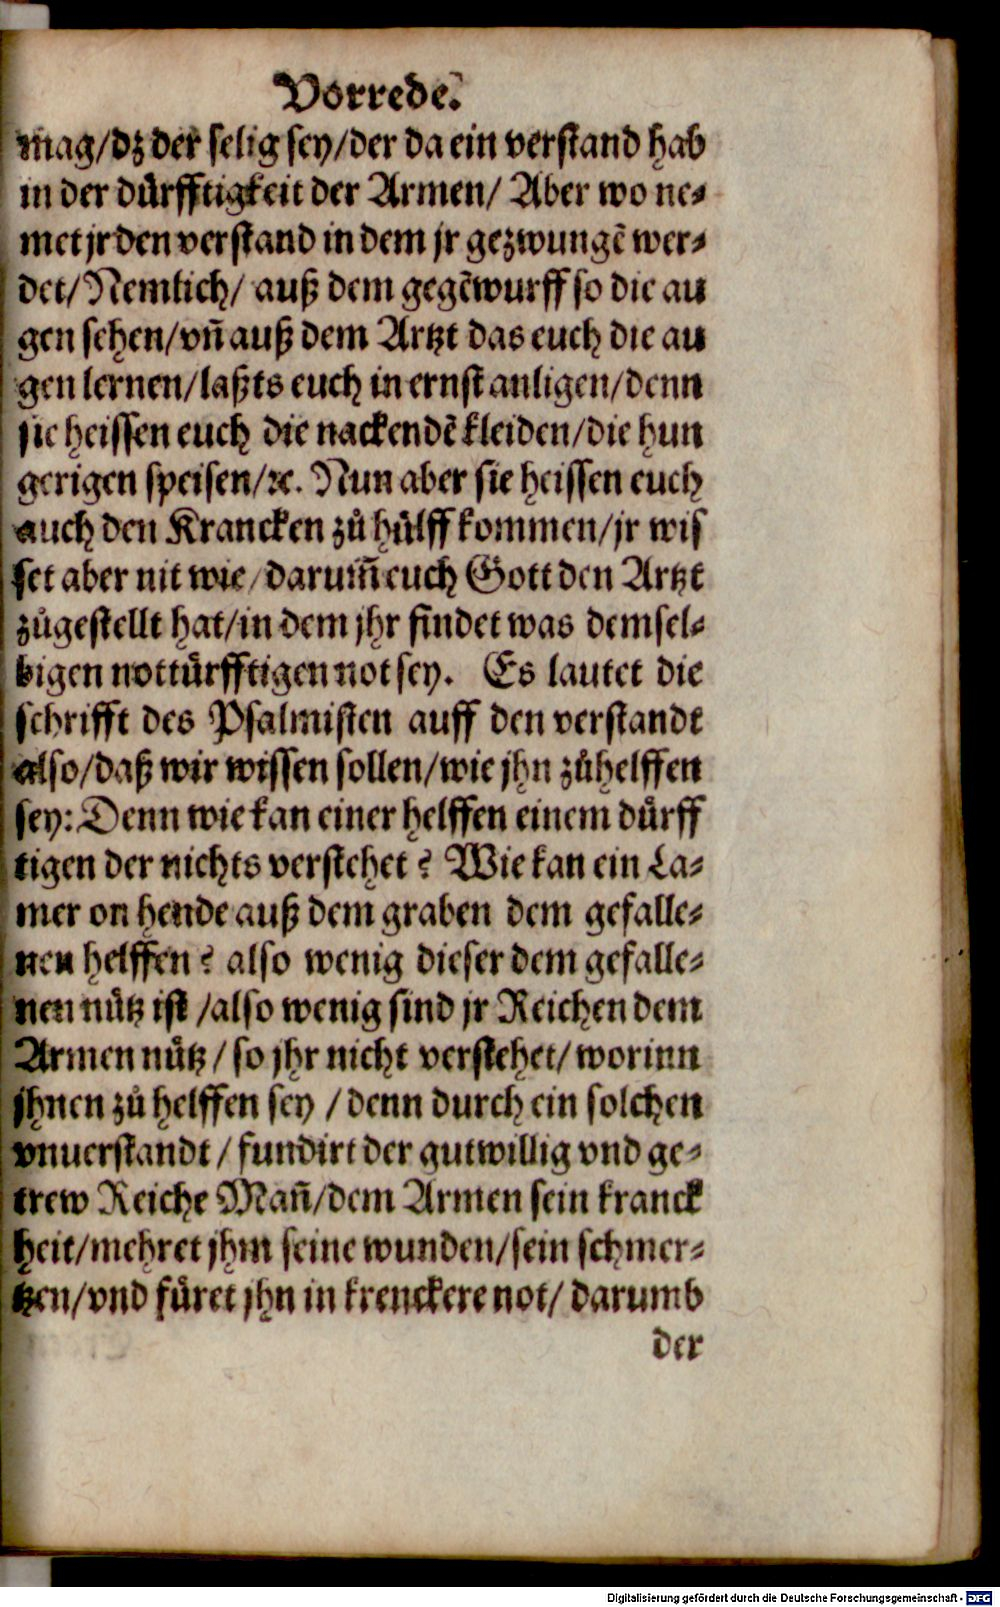 Vorrede.
mag/dz der selig sey/der da ein verstand hab
in der dürfftigkeit der Armen/ Aber wo ne⸗
met jr den verstand in dem jr gezwungẽ wer⸗
det/ Nemlich/ auß dem gegẽwurff so die au
gen sehen/vñ auß dem Artzt das euch die au
gen lernen/laßts euch in ernst anligen/denn
sie heissen euch die nackendẽ kleiden/die hun
gerigen speisen/ꝛc. Nun aber sie heissen euch
auch den Krancken zů hülff kommen/jr wis
set aber nit wie/darum̃ euch Gott den Artzt
zůgestellt hat/in dem jhr findet was demsel⸗
bigen nottürfftigen not sey. Es lautet die
schrifft des Psalmisten auff den verstandt
also/daß wir wissen sollen/wie jhn zůhelffen
sey: Denn wie kan einer helffen einem dürff
tigen der nichts verstehet? Wie kan ein La⸗
mer on hende auß dem graben dem gefalle⸗
nen helffen? also wenig dieser dem gefalle⸗
nen nütz ist /also wenig sind jr Reichen dem
Armen nütz/ so jhr nicht verstehet/ worinn
jhnen zů helffen sey /denn durch ein solchen
vnuerstandt/ fundirt der gutwillig vnd ge⸗
trew Reiche Mañ/dem Armen sein kranck
heit/mehret jhm seine wunden/sein schmer⸗
tzen/vnd füret jhn in krenckere not/ darumb
der
Digitalisierung gefördert durch die Deutsche Forschungsgemeinschaft - DFG